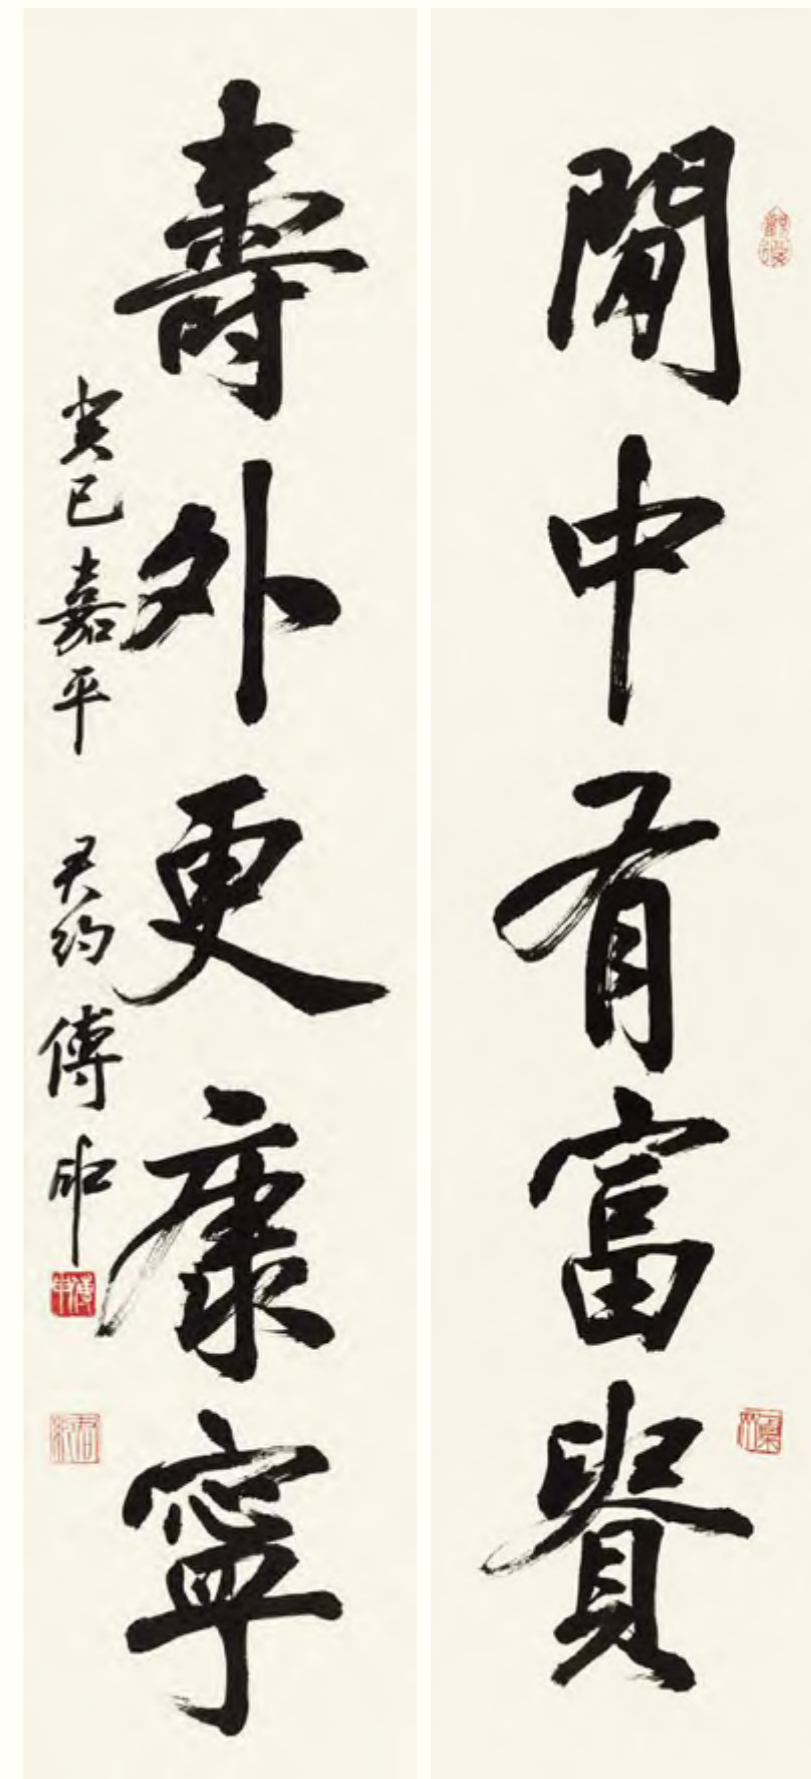 閒中有富貴
壽外更康寧
癸巳嘉平 君約傅申
傅申
君約